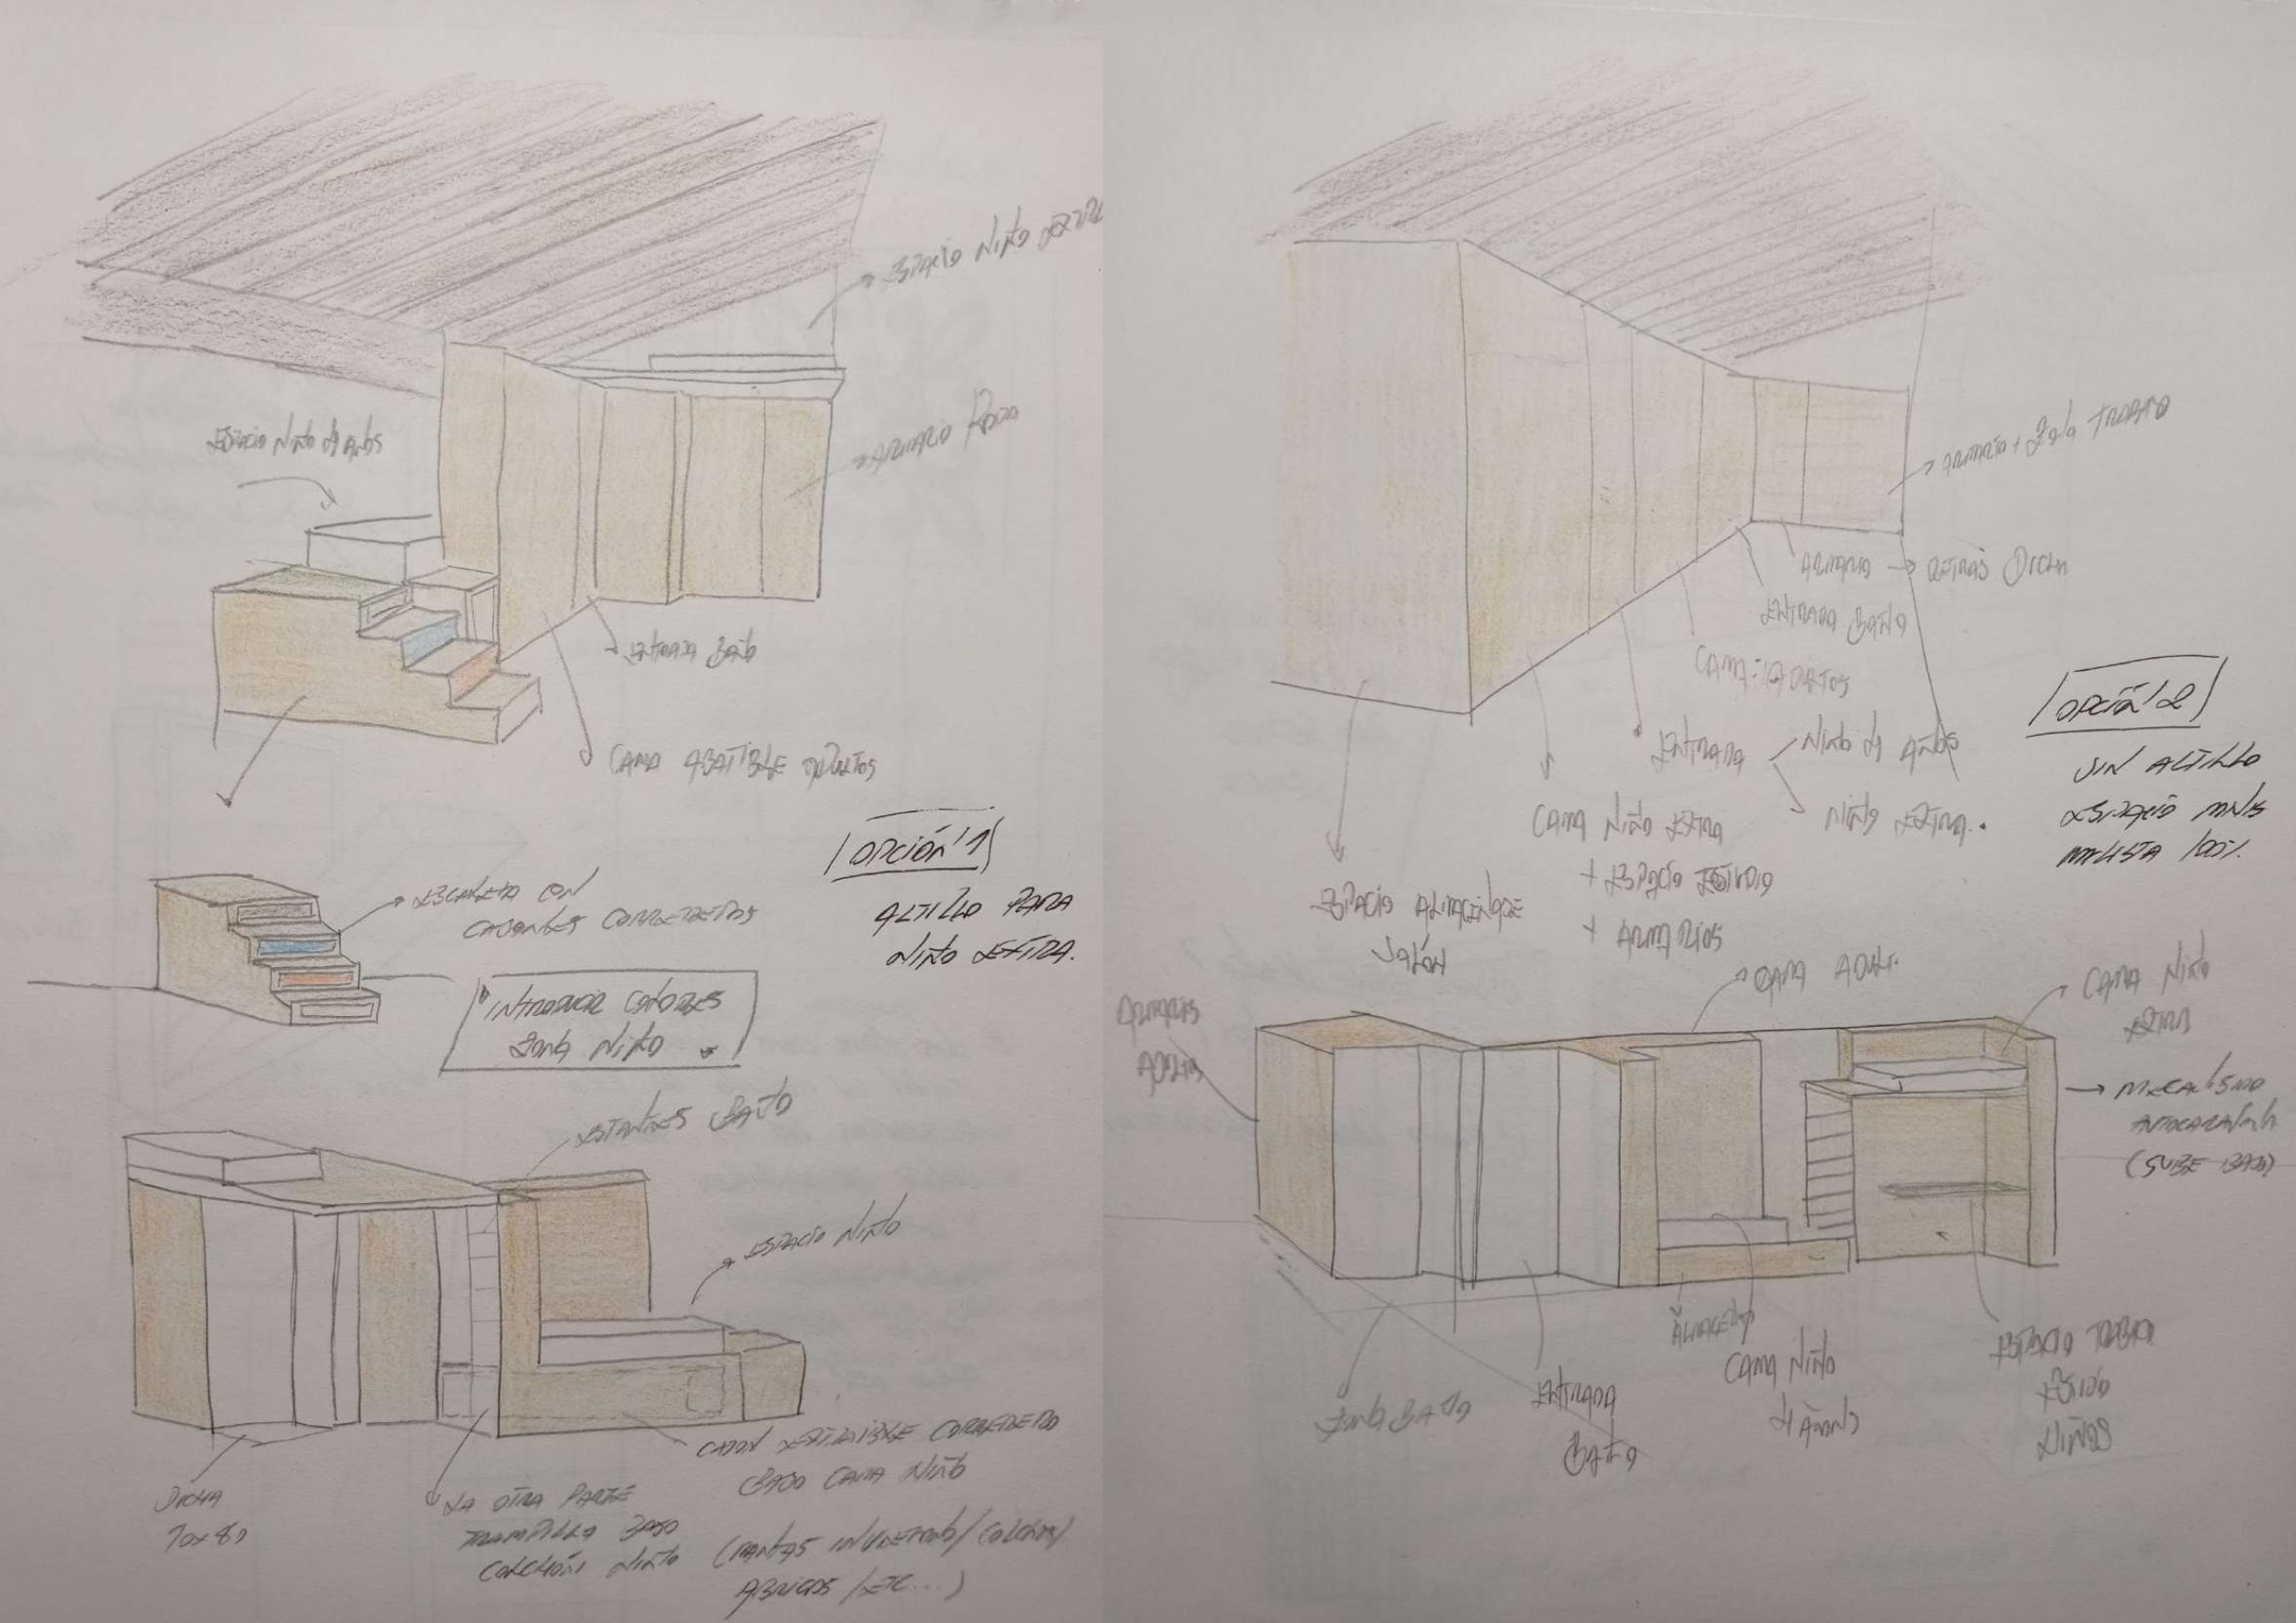 ESPACIO NIÑO EXTRA
ESPACIO NIÑO 4 AÑOS
ARMARIO ROPA
ENTRADA BAÑO
CAMA ABATIBLE ADULTOS
OPCIÓN 1
ALTILLO PARA
NIÑO EXTRA.
ESCALERA CON
CAJONES CORREDEROS
INTRODUCIR COLORES
ZONA NIÑO.
ESTANTES BAÑO
ESPACIO NIÑO
CAJON EXTRAIBLE CORREDERO
BAJO CAMA NIÑO
(MANTAS INVIERNO/COLCHON/
ABRIGOS/ETC...)
DUCHA
70x80
LA OTRA PARTE
TRAMPILLA BAJO
COLCHÓN NIÑO
ARMARIO + ZONA TRABAJO
ARMARIO → DETRAS DUCHA
ENTRADA BAÑO
CAMA ADULTOS
ENTRADA
NIÑO 4 AÑOS
NIÑO EXTRA.
CAMA NIÑO EXTRA
+ ESPACIO ESTUDIO
+ ARMARIOS
ESPACIO ALMACENAJE
SALÓN
OPCIÓN 2
SIN ALTILLO
ESPACIO MINI
MALISTA 100%
ARMARIOS
ADULTOS
CAMA ADULT.
CAMA NIÑO
EXTRA
→ MECANISMO
(SUBE BAJA)
ZONA BAÑO
ENTRADA
BAÑO
CAMA NIÑO
4 AÑOS
ESPACIO TRABAJO
ESTUDIO
NIÑOS